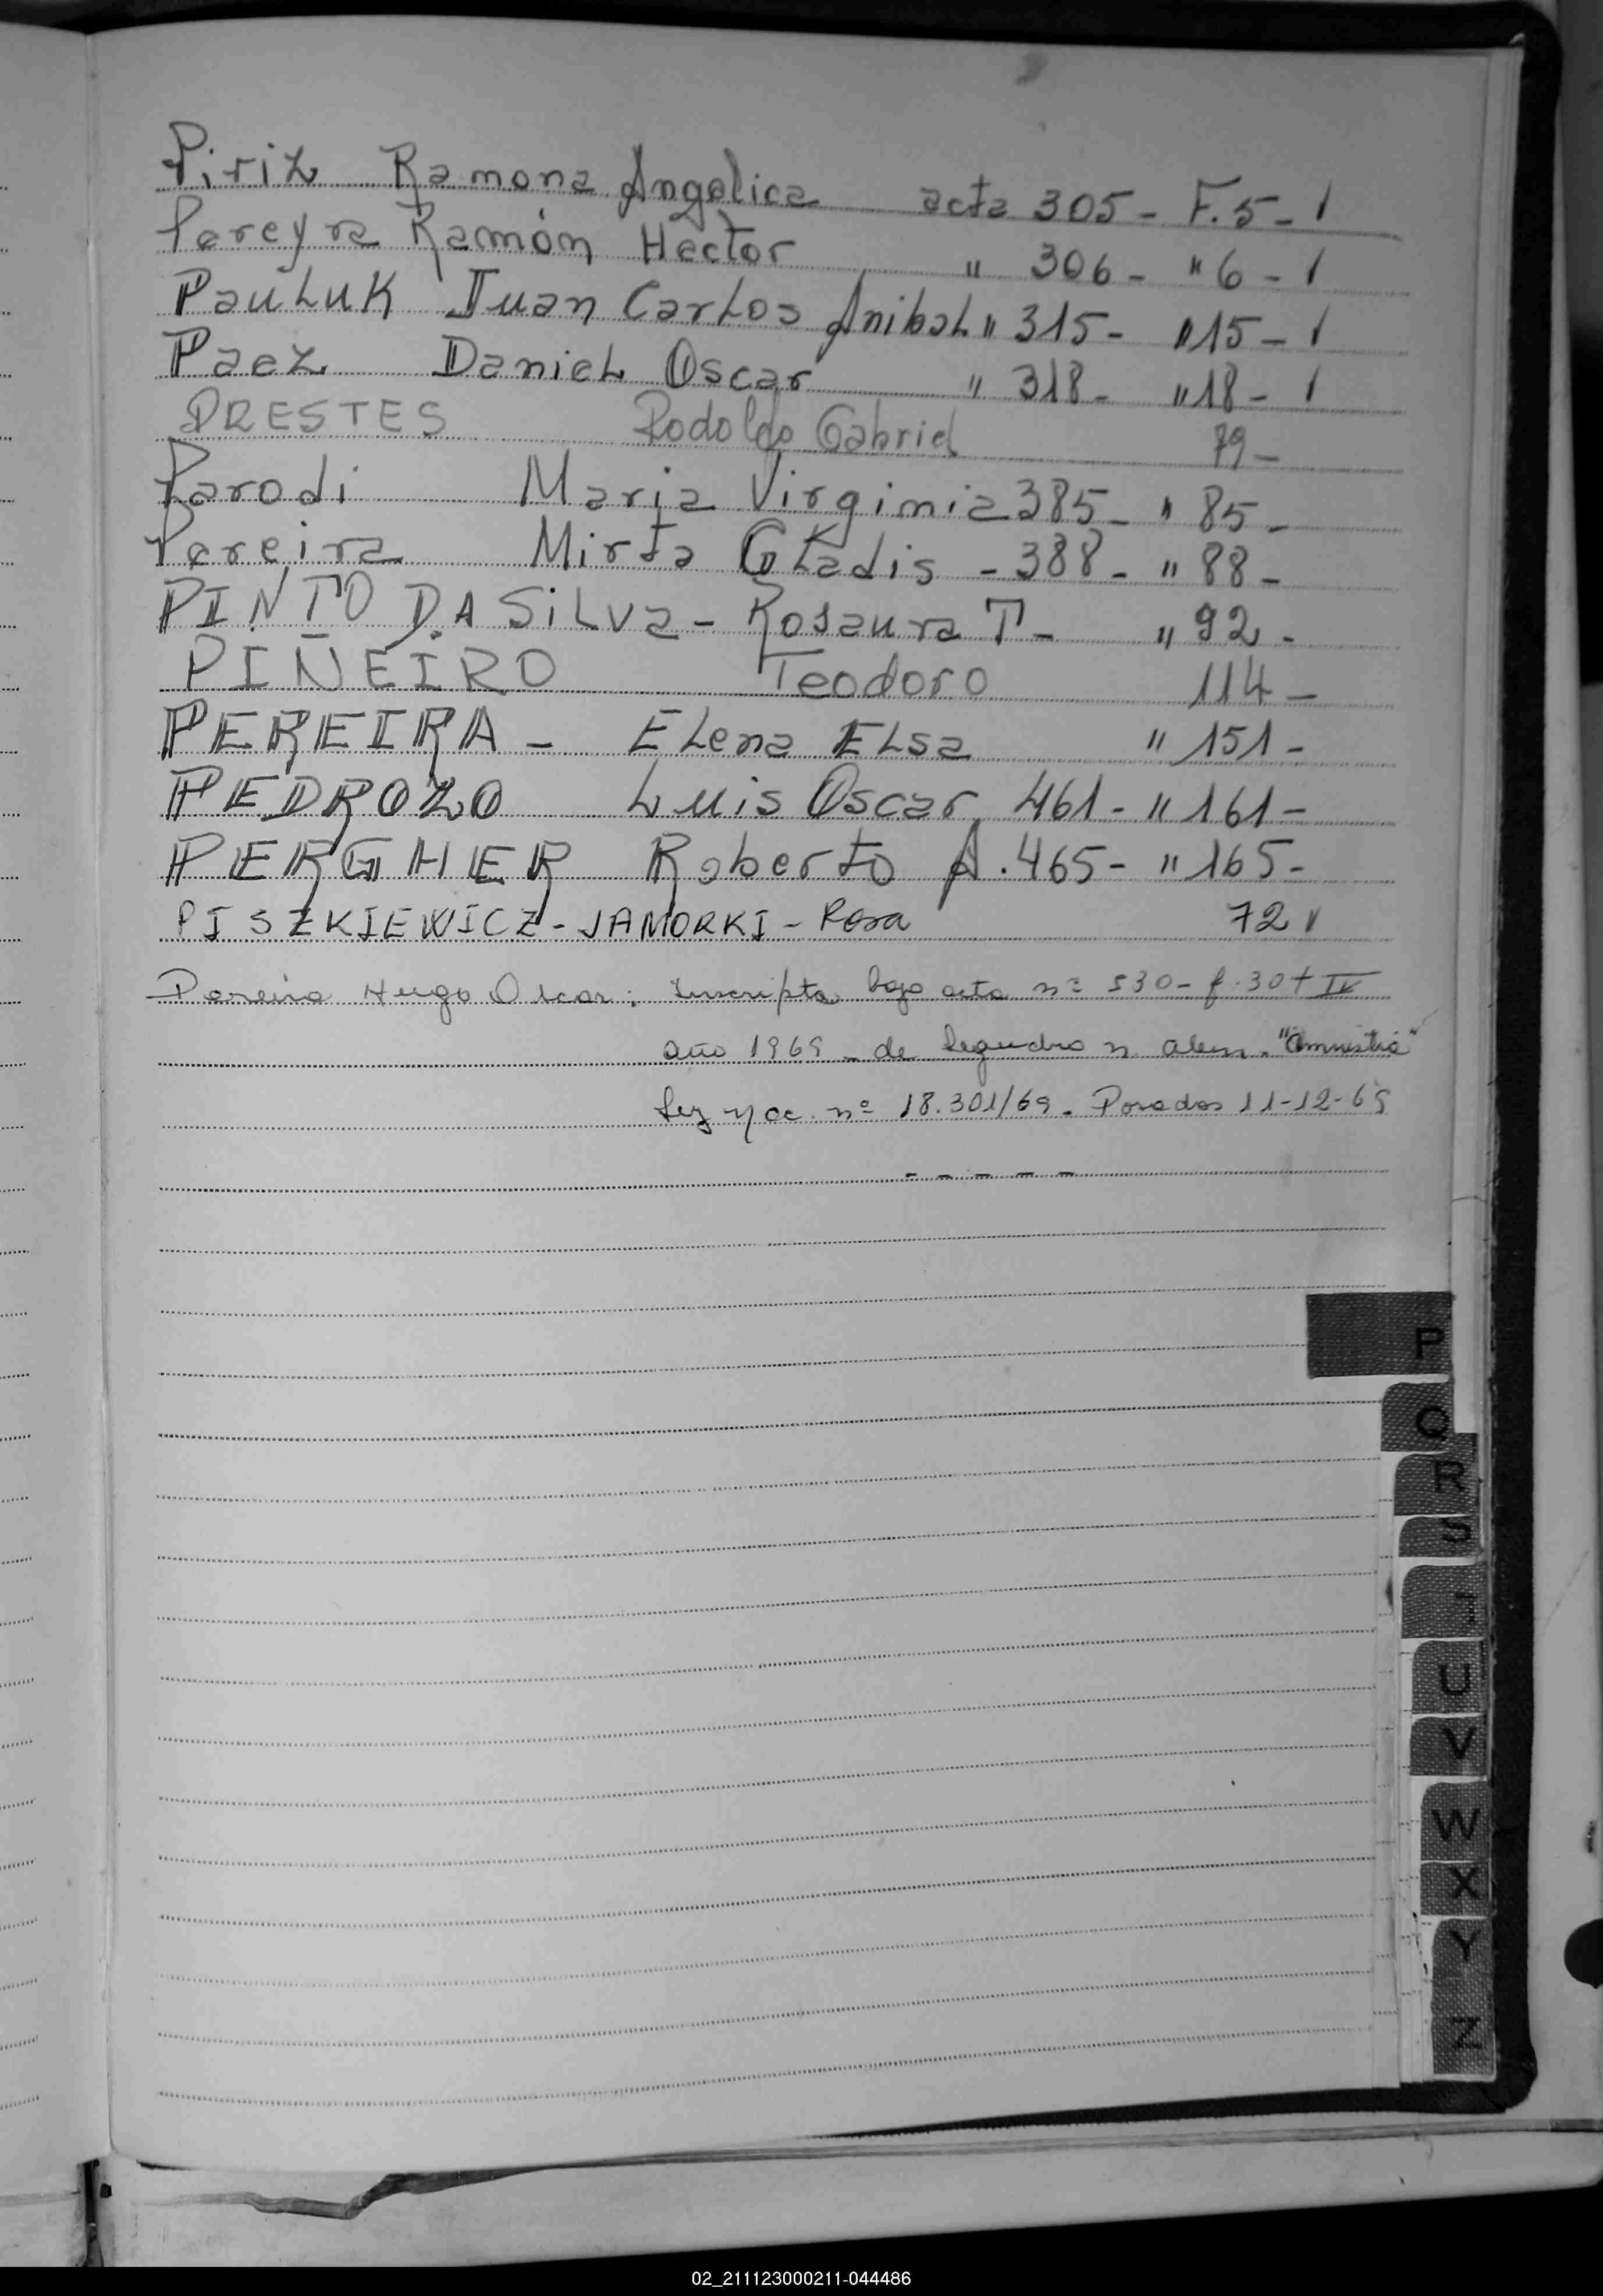 Piriz Ramona Angelica acta 305 - F. 5 - 1
Pereyra Ramón Hector " 306 - " 6 - 1
Pauluk Juan Carlos Anibal " 315 - " 15 - 1
Paez Daniel Oscar " 318 - " 18 - 1
PRESTES Rodolfo Gabriel 79 -
Parodi Maria Virginia 385 - " 85 -
Pereira Mirta Gladis - 388 - " 88 -
PINTO DA SiLVa - Rosaura T - " 92 -
PIÑEIRO Teodoro 114 -
PEREIRA - Elena Elsa " 151 -
PEDROZO Luis Oscar 461 - " 161 -
PERGHER Roberto A. 465 - " 165 -
PISZKIEWICZ - JAMORKI - Rosa 72
Pereira Hugo Oscar: Inscripta bajo acta nº 530 - f. 30 t IV
año 1969 - de Leandro n alem. "Amnistia"
Ley nac. nº 18.301/69 - Posadas 11-12-69
P
Q
R
S
T
U
V
W
X
Y
Z
02_211123000211-044486